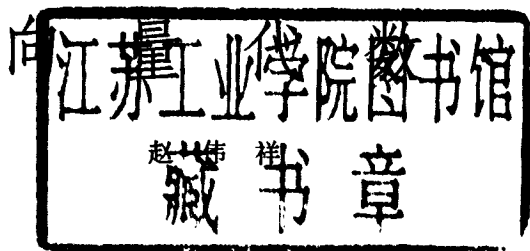 向量代数
江苏工业学院图书馆
赵伟祥
藏书章